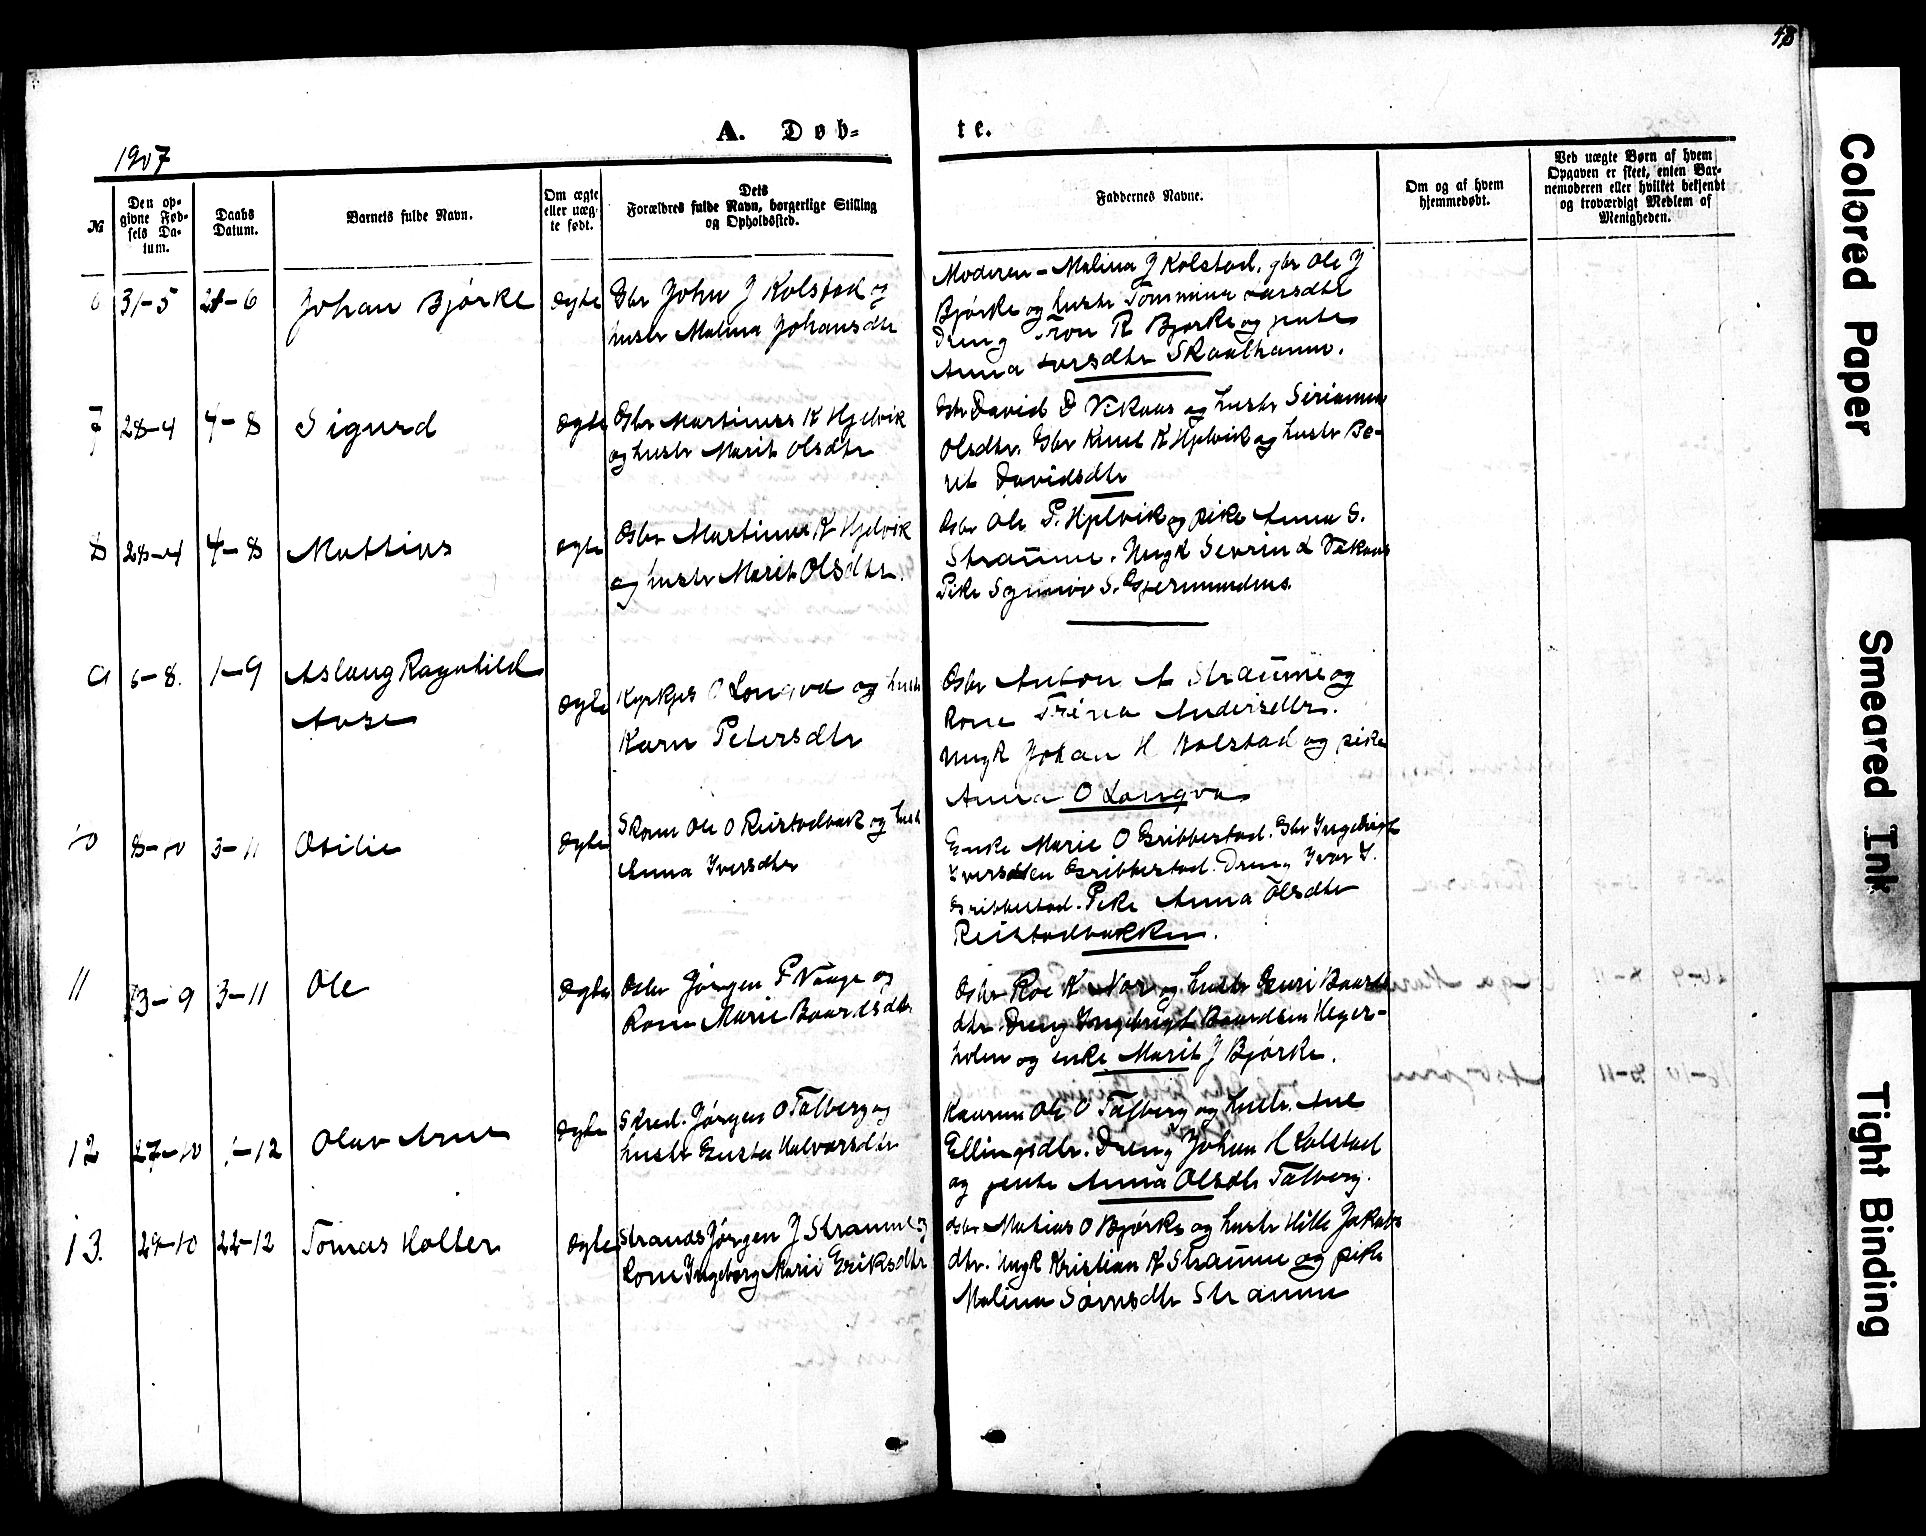 48
A. Døb=
te.
1907
№
Den op-
givne Fød-
sels Da-
tum.
Daabs
Datum.
Barnets fulde Navn.
Om ægte
eller uæg-
te født.
Dets
Forældres fulde Navn, borgerlige Stilling
og Opholdssted.
Faddernes Navne.
Om og af hvem
hjemmedøbt.
Ved uægte Børn af hvem
Opgaven er skeet, enten Bar-
nemoderen eller hvilket bekjendt
og troværdigt Medlem af
Menigheden.
6 31-5 28-6 Johan Bjørke ægte Gbr John J Kolstad og
hustr Malina Johansdtr
Moderen - Malina J Kolstad, gbr Ole J
Bjørke og hustr Tommine Larsdtr
Dreng Tron R Bjørke og jente
Anna Larsdtr Skaalhamn.
7 28-4 4-8 Sigurd ægte Gbr Martinus K Hjelvik
og hustr Marit Olsdtr
Gbr David D Vikaas og hustr Serianna
Olsdtr. Gbr Knut K Hjelvik og hustr Be-
ret Davidsdtr
8 28-4 4-8 Mattias ægte Gbr Martinus K Hjelvik
og hustr Marit Olsdtr.
Gbr Ole P. Hjelvik og pike Anna S.
Straume. Ungk Severin L Vikaas
Pike Synnøv S. Gjermundnes.
9 5-8. 1-9 Aslaug Ragnhild
Aase
ægte Kyrkjes O Longva og hustr
Karn Petersdtr
Gbr Anton A Straume og
kone Trina Andersdtr.
Ungk Johan H Kolstad og pike
Anna O Longva
10 8-10 3-11 Otilie ægte Skom Ole O Reistadbak og hust
Anna Iversdtr
Enke Marie O Gribbestad. Gbr Ingebrigt
Iversen Gribbestad. Dreng Ivar I.
Gribbestad. Pike Anna Olsdtr
Reistadbakken.
11 13-9 3-11 Ole ægte Gbr Jørgen P Vaage og
Kone Marie Baardsdtr
Gbr Roe K Vor og hustr Guri Baards
dtr. Dreng Ingebrigt Baardsen Heger-
holm og enke Marit J Bjørke.
12 27-10 1-12 Olav Arne ægte Skred. Jørgen O Talberg og
hustr Gusta Halvorsdtr
Kaarm Ole O Talberg og hustr. Ane
Ellingsdtr. Dreng Johan H Kolstad
og jente Anna Olsdtr Talberg.
13. 29-10 22-12 Tomas Holter ægte Strands Jørgen J Straume og
Kone Ingeborg Marie Eriksdtr
Gbr Matias O Bjørke og hustr Hille Jakobs
dtr. Ungk Kristian K Straume og pike
Malina Sørnsdtr Straume
Colored Paper
Smeared Ink
Tight Binding